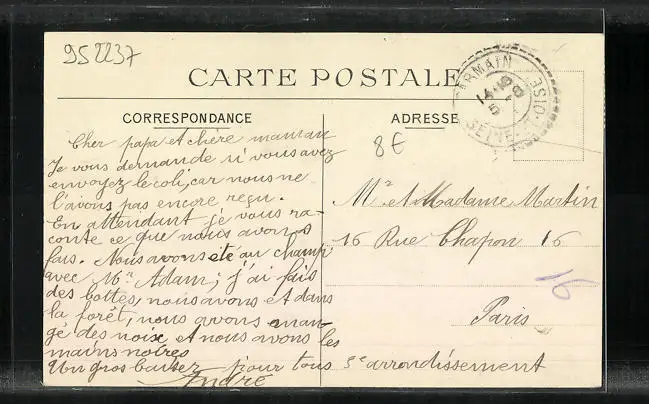 952237
CARTE POSTALE
CORRESPONDANCE
ADRESSE
8€
Cher papa et chère maman
Je vous demande si vous avez
envoyez le coli, car nous ne
l'avons pas encore reçu.
En attendant je vous ra-
conte ce que nous avons
fais. Nous avons été au champ
avec Mr. Adam; j'ai fais
des bottes, nous avons et dans
la forêt, nous avons man-
gé des noix et nous avons les
mains noires
Un gros baiser pour tous
André
Mr et Madame Martin
16 Rue Chapon 16
16
Paris
3e arrondissement
ERMAIN
14-15
5
SEINE
OISE